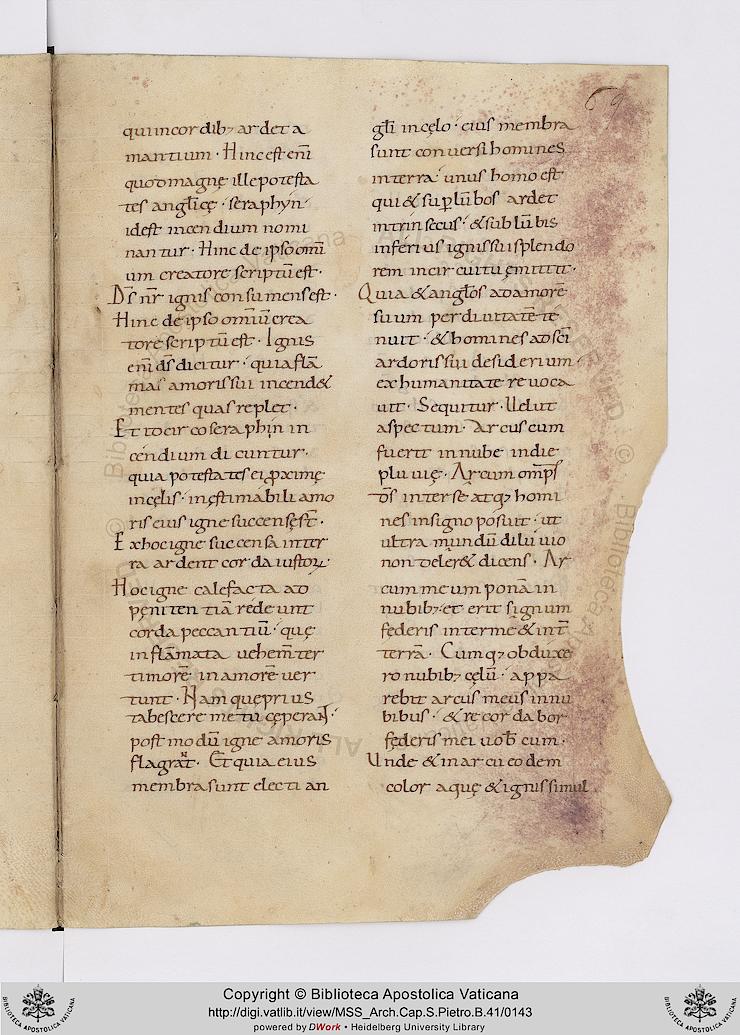 69
qui in cordib; ardet a
mantium · Hinc est eni̅
quod magnę ille potesta
tes angli̅cę · seraphyn
idest incendium nomi
nantur · Hinc de ipso om̅i
um creatore scriptu̅ est ·
D̅s n̅r ignis consumens est ·
Hinc de ipso omiu̅ crea
tore scriptu̅ est · Ignis
eni̅ d̅s dicitur · quia fla̅
mas amoris sui incend&
mentes quas replet ·
Et to circo seraphin in
cendium dicuntur ·
quia potestates ei p̲xime
in cęlis · inęstimabili amo
ris eius igne succens̨ est ·
Ex hoc igne succensa in ter
ra ardent corda iustoꝝ
Hoc igne calefacta ad
pęnitentia̅ redeunt
corda peccantiu̅ · quę
infla̅mata uehem̅ter
timore̅ in amore̅ uer
tunt · Nam que prius
tabescere metu cęperaN̅T ·
postmodu̅ igne amoris
flagrat̅ · Et quia eius
membra sunt electi an
gl̅i in cęlo · eius membra
sunt conuersi homines
in terra · unus homo est
qui & sup̲ lu̅bos ardet
intrinsecus · & sub lu̅bis
inferius ignis sui splendo
rem in circuitu ęmittit ·
Quia & angl̅os ad amore̅
suum per diuitate̅ te
nuit · & homines ad sc̅i
ardoris sui desiderium ·
ex humanitate reuoca
uit · Sequitur · Uelut
aspectum · arcus cum
fuerit in nube in die
pluuię · Arcum omp̅s
d̅s inter se atq; homi
nes in signo posuit · ut
ultra mundu̅ diluuio
non deler& dicens · Ar
cum meum pona̅ in
nubib; et erit signum
federis inter me̅ & int̅
terra̅ · Cumq; obduxe
ro nubib; cęlu̅ · appa
rebit arcus meus in nu
bibus · & recordabor
fęderis mei uob̅cum ·
Unde & in arcu eodem
color aquę & ignis simul
Copyright © Biblioteca Apostolica Vaticana
http://digi.vatlib.it/view/MSS_Arch.Cap.S.Pietro.B.41/0143
powered by DWork • Heidelberg University Library
BIBLIOTECA APOSTOLICA VATICANA
BIBLIOTECA APOSTOLICA VATICANA